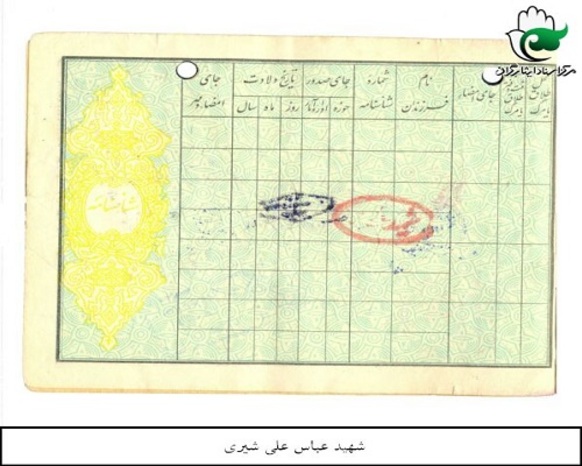 مرکز اسناد ایثارگران
نام
فرزندان
شماره
شناسنامه
جای صدور
حوزه
تاریخ ولادت
روز
ماه
سال
جای
امضاء و مهر
جای امضاء
طلاق
شناسنامه
شهید
شهید عباس علی شیری